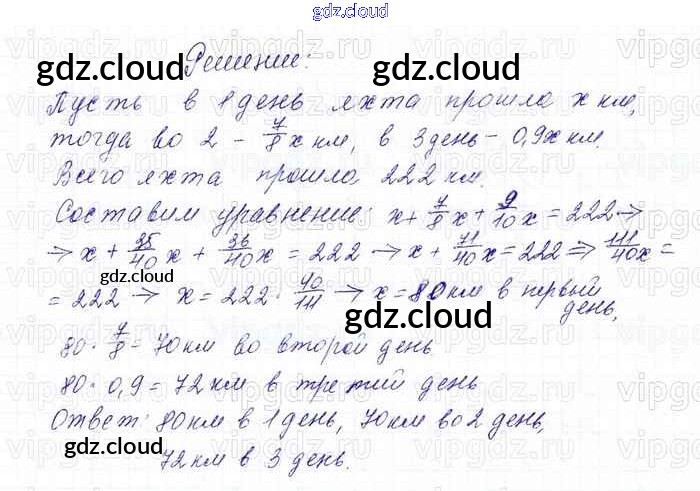 gdz.cloud
Решение:
gdz.cloud gdz.cloud
Пусть в 1 день яхта прошла x км,
тогда во 2 - 7/8 x км, в 3 день - 0,9x км.
Всего яхта прошла 222 км.
Составим уравнение: x + 7/8 x + 9/10 x = 222 →
→ x + 35/40 x + 36/40 x = 222 → x + 71/40 x = 222 ⇒ 111/40 x =
gdz.cloud
= 222 → x = 222 · 40/111 → x = 80 км в первый
день,
gdz.cloud
80 · 7/8 = 70 км во второй день
80 · 0,9 = 72 км в третий день
Ответ: 80 км в 1 день, 70 км во 2 день,
gdz.cloud
72 км в 3 день.
gdz.cloud